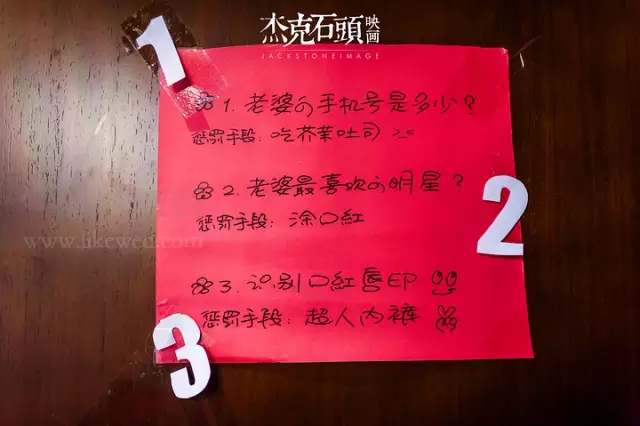 杰克石頭映画
JACKSTONEIMAGE
1
1. 老婆的手机号是多少?
惩罚手段: 吃芥茉吐司
2. 老婆最喜欢的明星?
惩罚手段: 涂口紅
2
www.likewed.com
3. 识别口紅唇EP
惩罚手段: 超人内裤
3